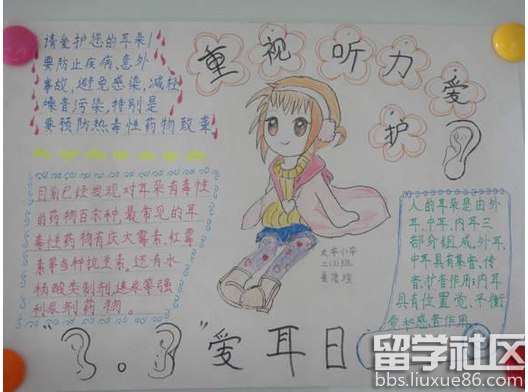 请爱护您的耳朵!
要防止疾病、意外
事故,避免感染,减轻
噪音污染,特别是
要预防热毒性药物致聋
重视听力爱护
目前已经发现,对耳朵有毒性
的药物百余种,最常见的耳
毒性药物有庆大霉素、红霉
素等多种抗生素。还有水
杨酸类制剂,速尿等强
利尿剂药物。
人的耳朵是由外
耳、中耳、内耳三
部分组成。外耳、
中耳具有集音、传
音、扩音作用;内耳
具有位置觉、平衡
觉和感音作用
小学
二(3)班
"3.3"爱耳日
留学社区
bbs.liuxue86.com